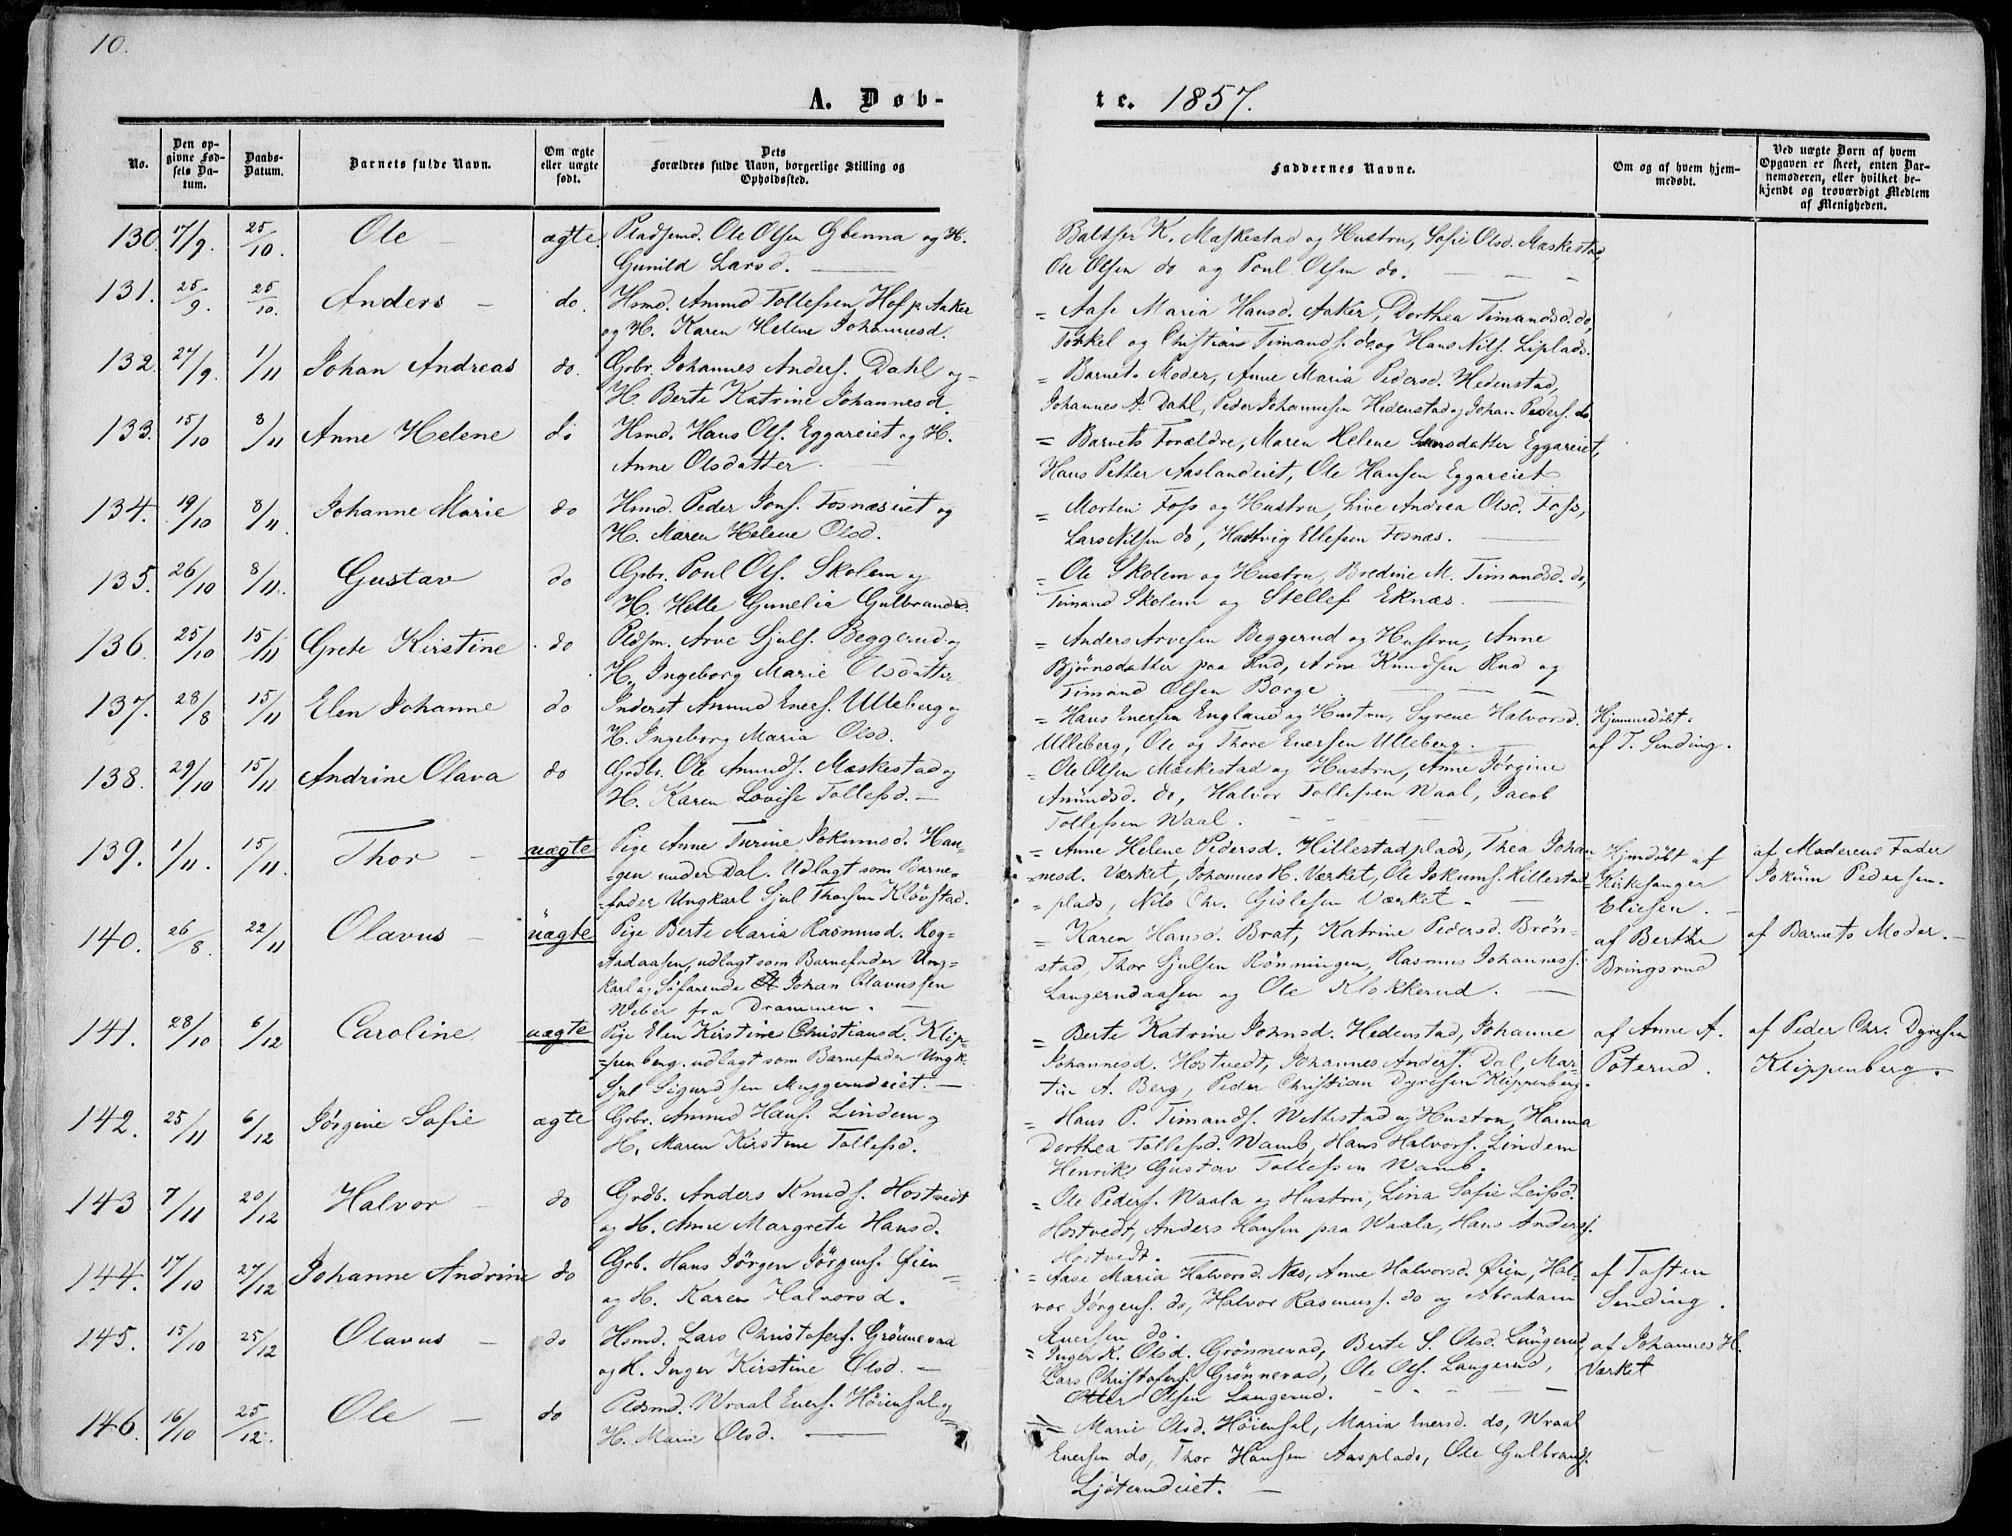 10.
A. Døb-
te. 1857.
No.
Den op-
givne Fød-
sels Da-
tum.
Daabs-
Datum.
Barnets fulde Navn.
Om ægte
eller uægte
født.
Dets
Forældres fulde Navn, borgerlige Stilling og
Opholdssted.
Faddernes Navne.
Om og af hvem hjem-
medøbt.
Ved uægte Børn af hvem
Opgaven er skeet, enten Bar-
nemoderen, eller hvilket be-
kjendt og troværdigt Medlem
af Menigheden.
130. 17/9. 25/10. Ole ægte. Pladsmd. Ole Olsen Glenna og H.
Gunild Larsd.
Baltser K. Mæskestad og Hustru, Sofie Olsd. Mæskestad,
Ole Olsen do og Poul Olsen do.
131. 25/9. 25/10. Anders do. Hsmd. Anund Tollefsen Hof p. Aaker
og H. Karen Helene Johannesd.
= Aase Maria Hansd. Aaker, Dorthea Timandsd. do,
Torkel og Christian Timands. do og Hans Nils. Liplads.
132. 27/9. 1/11 Johan Andreas do. Grbr. Johannes Anders. Dahl og
H. Berte Katrine Johannesd.
= Barnets Moder, Anne Maria Pedersd. Hedenstad,
Johannes A. Dahl, Peder Johannesen Hedenstad og Johan Peders. do
133. 15/10 8/11 Anne Helene do Hsmd. Hans Ols. Eggareiet og H.
Anne Olsdatter.
= Barnets Forældre, Maren Helene Larsdatter Eggareiet,
Hans Petter Aaslandeiet, Ole Hansen Eggareiet
134. 19/10 8/11. Johanne Marie do Hsmd. Peder Jons. Fosnæseiet og
H. Maren Helene Olsd.
= Morten Foss og Hustru, Live Andrea Olsd. Foss,
Lars Nilsen do, Hartvig Ellefsen Fosnæs.
135. 26/10 8/11. Gustav do Grbr. Poul Ols. Skolem og
H. Helle Gunelia Gulbrandsd.
= Ole Skolem og Hustru, Bredine M. Timandsd. do,
Timand Skolem og Stellef Eknæs.
136. 25/10 15/11 Grete Kirstine do Pldsm. Arve Sjuls. Beggerud og
H. Ingeborg Marie Olsdatter
= Anders Arvesen Beggerud og Hustru, Anne
Bjørnsdatter paa Rud, Arne Knudsen Rud og
Timand Olsen Borge
137. 28/8 15/11 Elen Johanne do Inderst Anund Eners. Ulleberg og
H. Ingeborg Maria Olsd.
= Hans Enersen England og Hustru, Syrene Halvorsd.
Ulleberg, Ole og Thore Enersen Ulleberg.
Hjemmedøbt
af T. Sending.
138. 29/10 15/11 Andrine Olava do Grdbr. Ole Anunds. Mæskestad og
H. Karen Lovise Tollefsd.
= Ole Olsen Mæskestad og Hustru, Anne Jørgine
Anundsd. do, Halvor Tollefsen Waal, Jacob
Tollefsen Waal.
139. 1/11. 15/11. Thor uægte Pige Anne Turine Jokumsd. Hau-
=gen under Dal. Udlagt som Barne-
=fader Ungkarl Sjul Thorsen Kløvstad.
= Anne Helene Pedersd. Hillestadplads, Thea Johan-
=nesd. Værket, Johannes H. Værket, Ole Jokums. Hillestad-
=plads, Nils Chr. Gislesen Værket
Hjmdøbt af
Kirkesanger
Eliesen.
af Moderens Fader
Jokum Pedersen.
140. 26/8. 22/11 Olavus uægte Pige Berte Maria Rasmusd. Rog-
stadaasen, udlagt som Barnefader Ung=
karl og Søfarende Johan Olavussen
Weber fra Drammen.
= Karen Hansd. Brat, Katrine Pedersd. Brøn-
stad, Thor Sjulsen Rønningen, Rasmus Johanness.
Langerudaasen og Ole Klokkerud.
af Berthe
Bringsrud
af Barnets Moder.
141. 28/10 6/12 Caroline uægte Pige Elen Kirstine Christiansd. Klip-
=penberg, udlagt som Barnefader Ungk.
Sjul Sigurdsen Muggerudeiet.
= Berte Katrine Johnsd. Hedenstad, Johanne
Johannesd. Hostvedt, Johannes Anders. Dal, Mar-
tin A. Berg, Peder Christian Dyresen Klippenberg.
af Anne A.
Poterud.
af Peder Chr. Dyresen
Klippenberg.
142. 25/11 6/12 Jørgine Sofie ægte Grbr. Anund Hans. Lindem og
H. Maren Kirstine Tollefsd.
= Hans P. Timands. Wettestad og Hustru, Hanna
Dorthea Tollefsd. Wamb, Hans Halvors. Lindem
Henrik Gustav Tollefsen Wamb.
143 7/11 20/12 Halvor do Grdb. Anders Knuds. Hostvedt
og H. Anne Margrete Hansd.
= Ole Peders. Waala og Hustru, Lina Sofie Leifsd.
Hostvedt, Anders Hansen paa Waala, Hans Anders.
Hostvedt.
144. 17/10 27/12 Johanne Andrine do Grb. Hans Jørgen Jørgens. Øien
og H. Karen Halvorsd.
= Aase Maria Halvorsd. Næs, Anne Halvorsd. Øien, Hal-
vor Jørgens. do, Halvor Rasmuss. do og Abraham
Enersen do.
af Tosten
Sending.
145. 15/10 25/12 Olavus do Hsmd. Lars Christofers. Grønnevad
og H. Inger Kirstine Olsd.
= Inger K. Olsd. Grønnevad, Berte S. Olsd. Langerud,
Lars Christofers. Grønnevad, Ole Ols. Langerud,
Otter Olsen Langerud.
af Johannes H.
Værket
146. 16/10 25/12. Ole do Pldsmd. Wraal Eners. Høiensal og
H. Marie Olsd.
= Marie Olsd. Høiensal, Maria Enersd. do, Wraal
Enersen do, Thor Hansen Aasplads, Ole Gulbrands.
Ljøterudeiet.